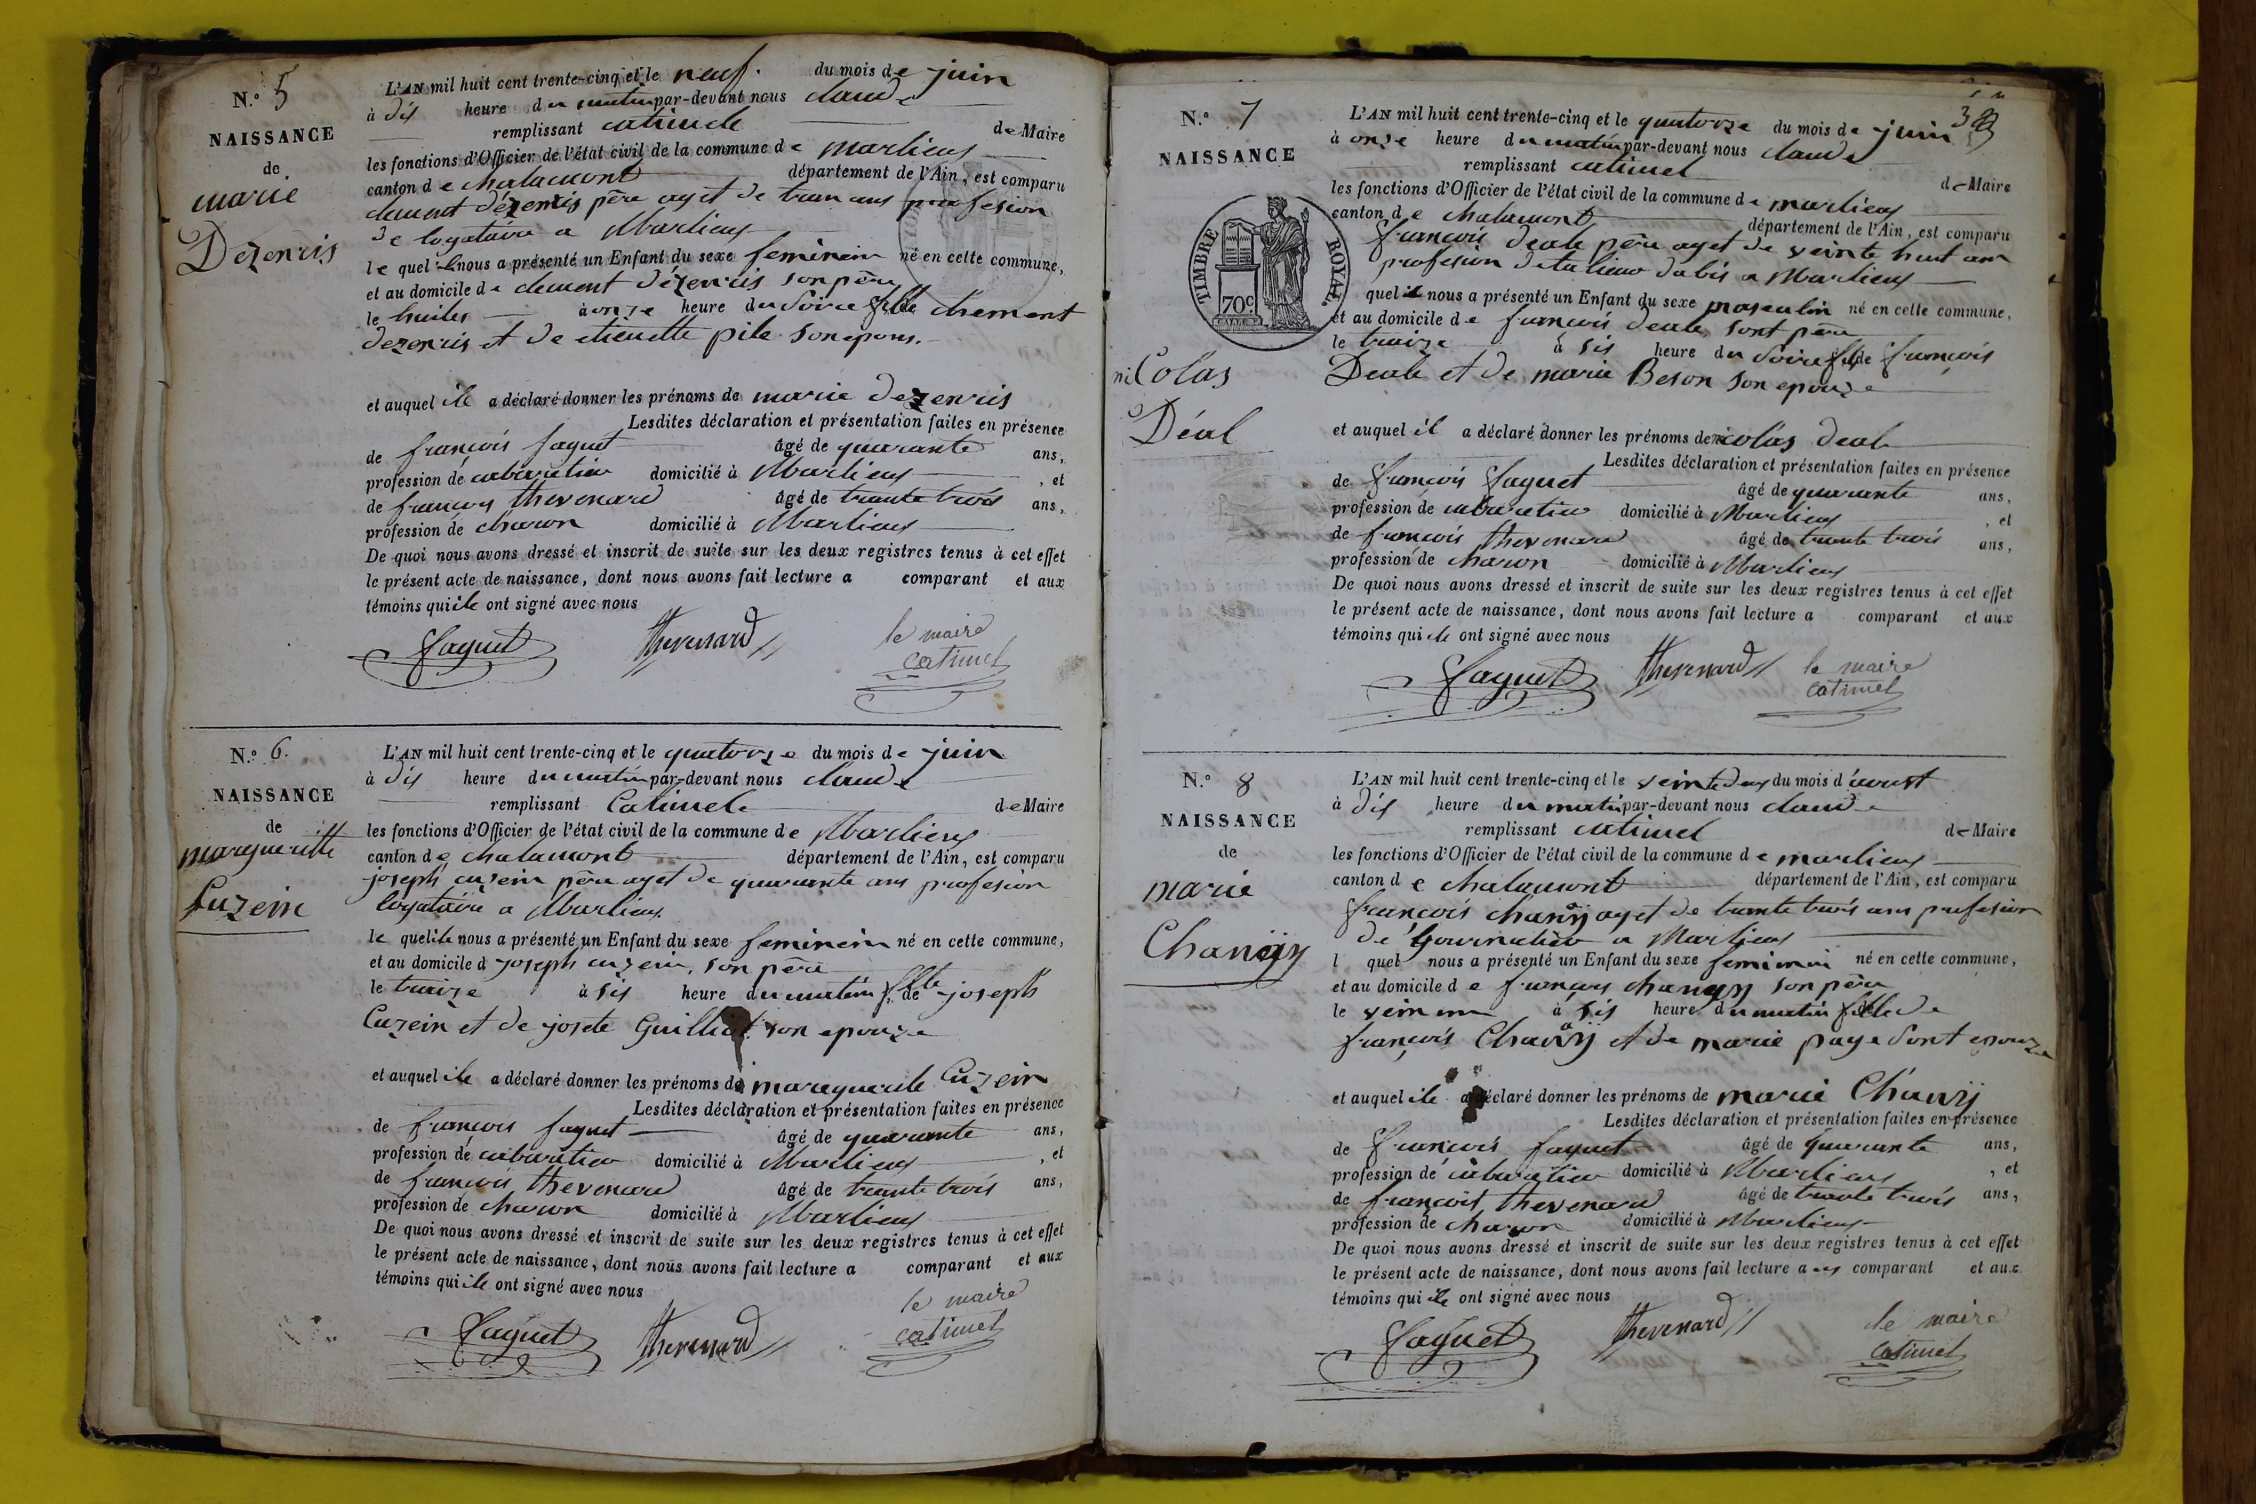 N.º 5
NAISSANCE
de
marie
Dezenris
L'AN mil huit cent trente-cinq et le neuf. du mois de juin
à dis heure du matin par-devant nous claude
remplissant catimel de Maire
les fonctions d'Officier de l'état civil de la commune de marlieux
canton de chalamont département de l'Ain, est comparu
clement dézenris père aget de ans profesion
de logataire a Marlieux
le quel nous a présenté un Enfant du sexe feminein né en cette commune,
et au domicile de clement dézenris son père
le huites à onze heure du Soire fille de clement
dezenris et de etienette pite son epous.
et auquel ile a déclaré donner les prénoms de marie dezenris
Lesdites déclaration et présentation faites en présence
de françois faguet âgé de quarante ans,
profession de cabaretier domicilié à Marlieux , et
de françois thevenard âgé de trante trois ans,
profession de charon domicilié à Marlieux
De quoi nous avons dressé et inscrit de suite sur les deux registres tenus à cet effet
le présent acte de naissance, dont nous avons fait lecture a comparant et aux
témoins qui ile ont signé avec nous
faguet thevenard le maire
catimel
N.º 6.
NAISSANCE
de
marguerite
Cuzein
L'AN mil huit cent trente-cinq et le quatorze du mois de juin
à dis heure du matin par-devant nous claude
remplissant Catimele de Maire
les fonctions d'Officier de l'état civil de la commune de Marlieux
canton de chalamont département de l'Ain, est comparu
joseph cuzein père aget de quarante ans profesion
logataire a Marlieux
le quel ile nous a présenté un Enfant du sexe feminein né en cette commune,
et au domicile d joseph cuzein, son père
le traize à sis heure du matin fille de joseph
Cuzein et de josete Guilliot son epouze
et auquel ile a déclaré donner les prénoms de marguerite Cuzein
Lesdites déclaration et présentation faites en présence
de françois faguet âgé de quarante ans,
profession de cabaretier domicilié à Marlieux , et
de françois thevenard âgé de trante trois ans,
profession de charon domicilié à Marlieux
De quoi nous avons dressé et inscrit de suite sur les deux registres tenus à cet effet
le présent acte de naissance, dont nous avons fait lecture a comparant et aux
témoins qui ile ont signé avec nous
faguet thevenard le maire
catimel
38
N.º 7
NAISSANCE
TIMBRE ROYAL
70c
nicolas
Déal
L'AN mil huit cent trente-cinq et le quatorze du mois de juin
à onze heure du matin par-devant nous claude
remplissant catimel de Maire
les fonctions d'Officier de l'état civil de la commune de marlieux
canton de chalamont département de l'Ain, est comparu
françois deale père aget de veinte huit ans
profesion detalieur dabis a Marlieux
quel il nous a présenté un Enfant du sexe masculin né en cette commune,
et au domicile de françois deale sont père
le traize à sis heure du Soire fils de françois
Deale et de marie Beson son epouze
et auquel il a déclaré donner les prénoms de nicolas deale
Lesdites déclaration et présentation faites en présence
de françois faguet âgé de quarante ans,
profession de cabaretier domicilié à Marlieux , et
de françois thevenard âgé de trante trois ans,
profession de charon domicilié à Marlieux
De quoi nous avons dressé et inscrit de suite sur les deux registres tenus à cet effet
le présent acte de naissance, dont nous avons fait lecture a comparant et aux
témoins qui ile ont signé avec nous
faguet thevenard le maire
catimel
N.º 8
NAISSANCE
de
marie
Chanÿy
L'AN mil huit cent trente-cinq et le veinte deux du mois d'aoust
à dis heure du matin par-devant nous claude
remplissant catimel de Maire
les fonctions d'Officier de l'état civil de la commune de marlieux
canton de chalamont département de l'Ain, est comparu
françois aget de trante trois ans profesion
de journalier a Marlieux
l quel nous a présenté un Enfant du sexe feminin né en cette commune,
et au domicile de françois son père
le à sis heure du matin fille de
françois et de marie page sont epouze
et auquel ile a déclaré donner les prénoms de marie
Lesdites déclaration et présentation faites en présence
de françois faguet âgé de quarante ans,
profession de cabaretier domicilié à Marlieux , et
de françois thevenard âgé de trante trois ans,
profession de charon domicilié à Marlieux
De quoi nous avons dressé et inscrit de suite sur les deux registres tenus à cet effet
le présent acte de naissance, dont nous avons fait lecture a comparant et aux
témoins qui ile ont signé avec nous
faguet thevenard le maire
catimel